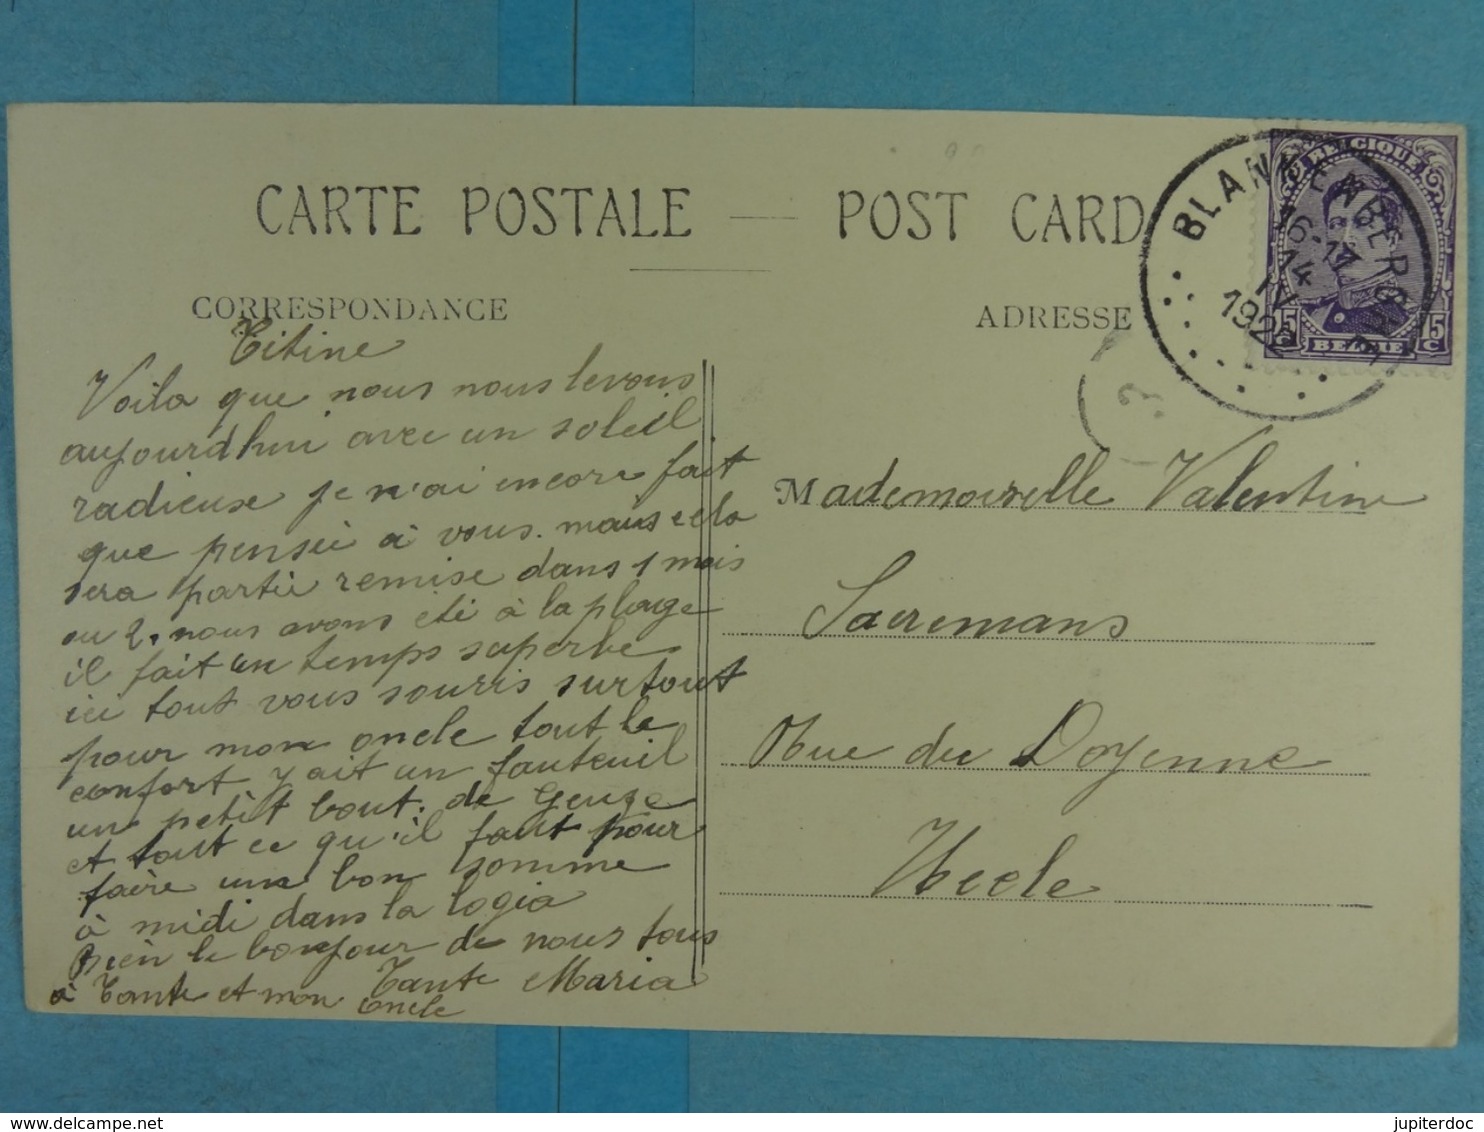 CARTE POSTALE — POST CARD
CORRESPONDANCE
ADRESSE
BLANKENBERGHE
16-17
14
IV
1922
BELGIQUE
15 C
15 C
BELGIE
Titine
Voila que nous nous levons
aujourdhui avec un soleil
radieuse je n'ai encore fait
que pensée à vous. mais cela
sera partie remise dans 1 mois
ou 2. nous avons été à la plage
il fait un temps superbe
ici tout vous souris surtout
pour mon oncle tout le
confort y ait un fauteuil
un petit bout. de Geuze
et tout ce qu'il faut pour
faire un bon somme
à midi dans la logia
Bien le bonjour de nous tous
à Tante et mon Oncle
Tante Maria
Mademoiselle Valentine
Saeremans
Rue du Doyenne
Uccle
jupiterdoc